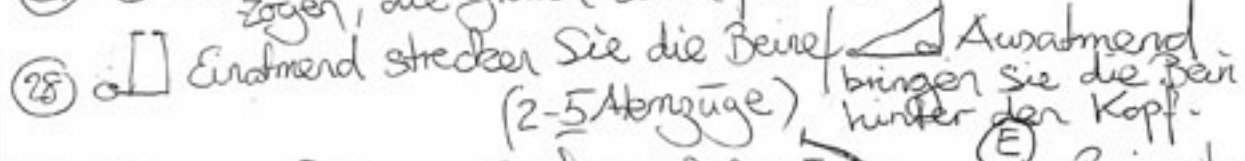 zogen, die
28 Einatmend strecken Sie die Beine Ausatmend
(2-5 Atemzüge) bringen sie die Bein
hinter den Kopf.
E